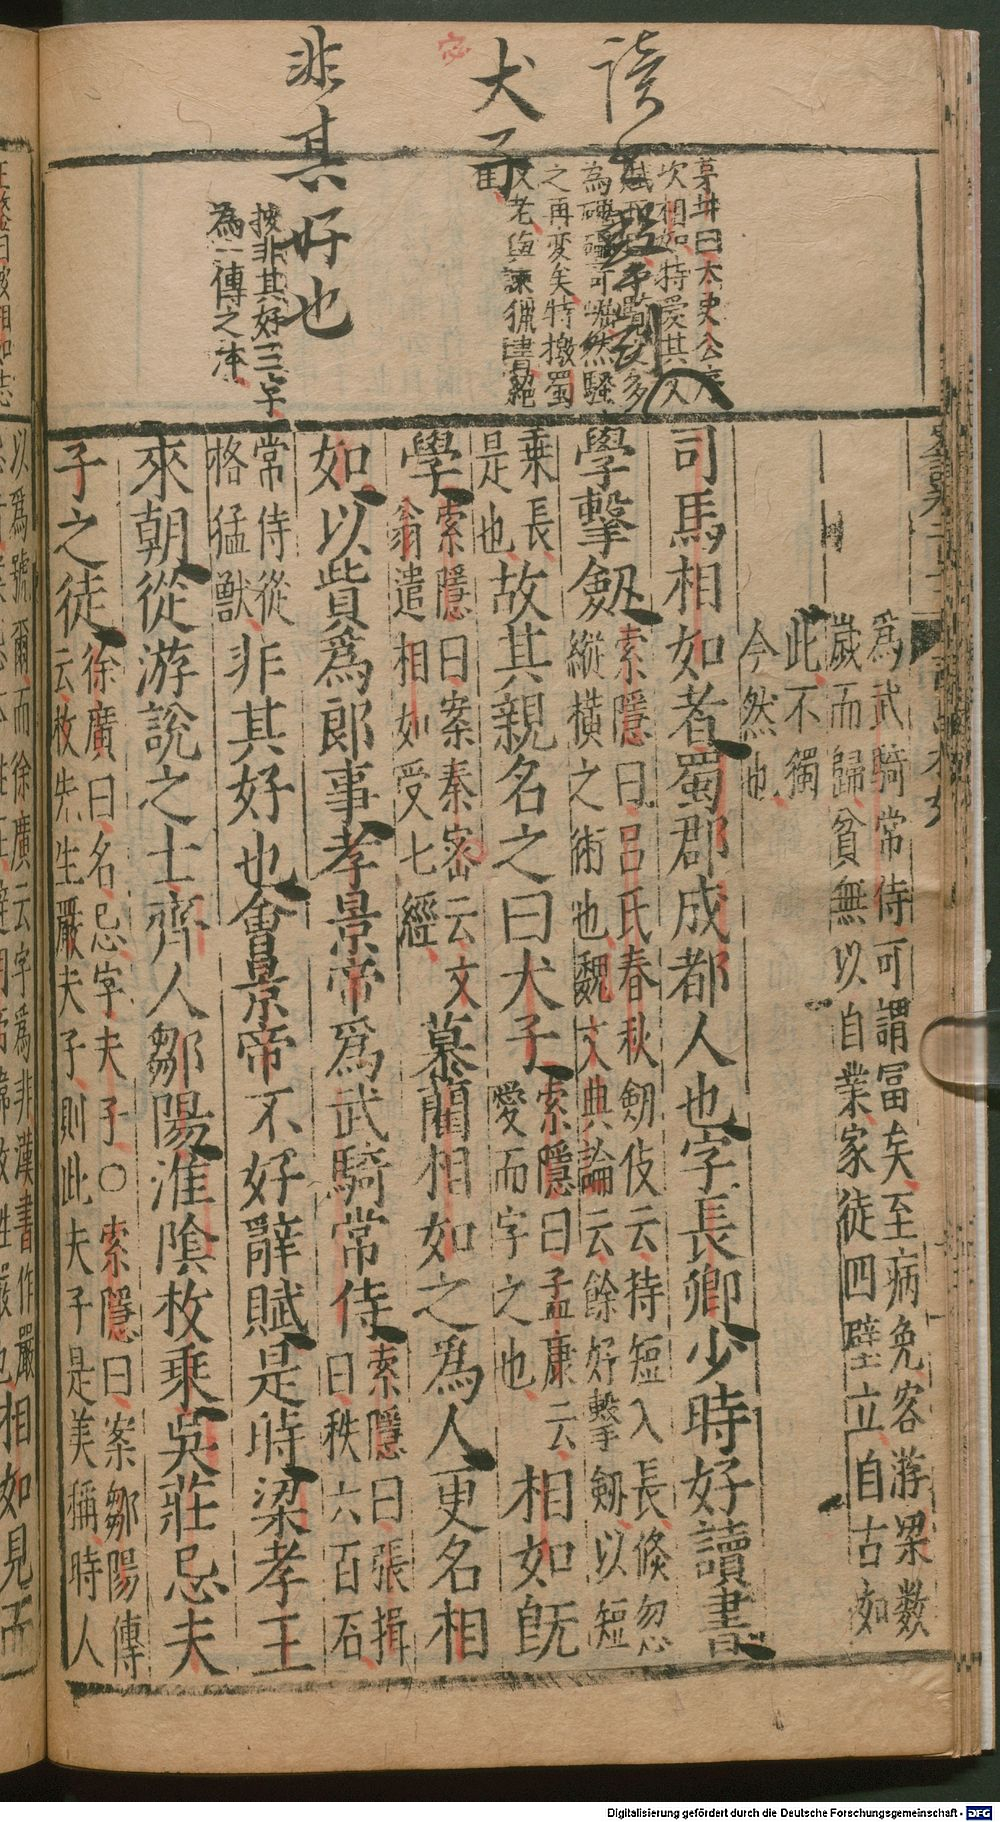 讀
犬子
非其好也
茅坤曰太史公
次相如特愛其文
賦
為
可
然騷
之再變矣特撽蜀
父老與諫獵書絕
佳
按非其好三字
為一傳之本
為武騎常侍可謂冨矣至病免客游梁數
歲而歸貧無以自業家徒四壁立自古如
此不獨
今然也
司馬相如者蜀郡成都人也字長卿少時好讀書
學擊劔
索隱曰呂氏春秋劔伎云持短入長倐忽
縱横之術也魏文典論云餘好擊劔以短
乗長
是也
故其親名之曰犬子
索隱曰孟康云
愛而字之也
相如既
學
索隱曰案秦宻云文
翁遣相如受七經
慕藺相如之爲人更名相
如以貲爲郎事孝景帝爲武騎常侍
索隱曰張揖
曰秩六百石
常侍從
格猛獸
非其好也會景帝不好辭賦是時梁孝王
來朝從游說之士齊人鄒陽淮陰枚乗吳莊忌夫
子之徒
徐廣曰名忌字夫子○索隱曰案鄒陽傳
云枚先生嚴夫子則此夫子是美稱時人
以爲號爾而徐廣云字爲非漢書作嚴
相如見而
Digitalisierung gefördert durch die Deutsche Forschungsgemeinschaft - DFG